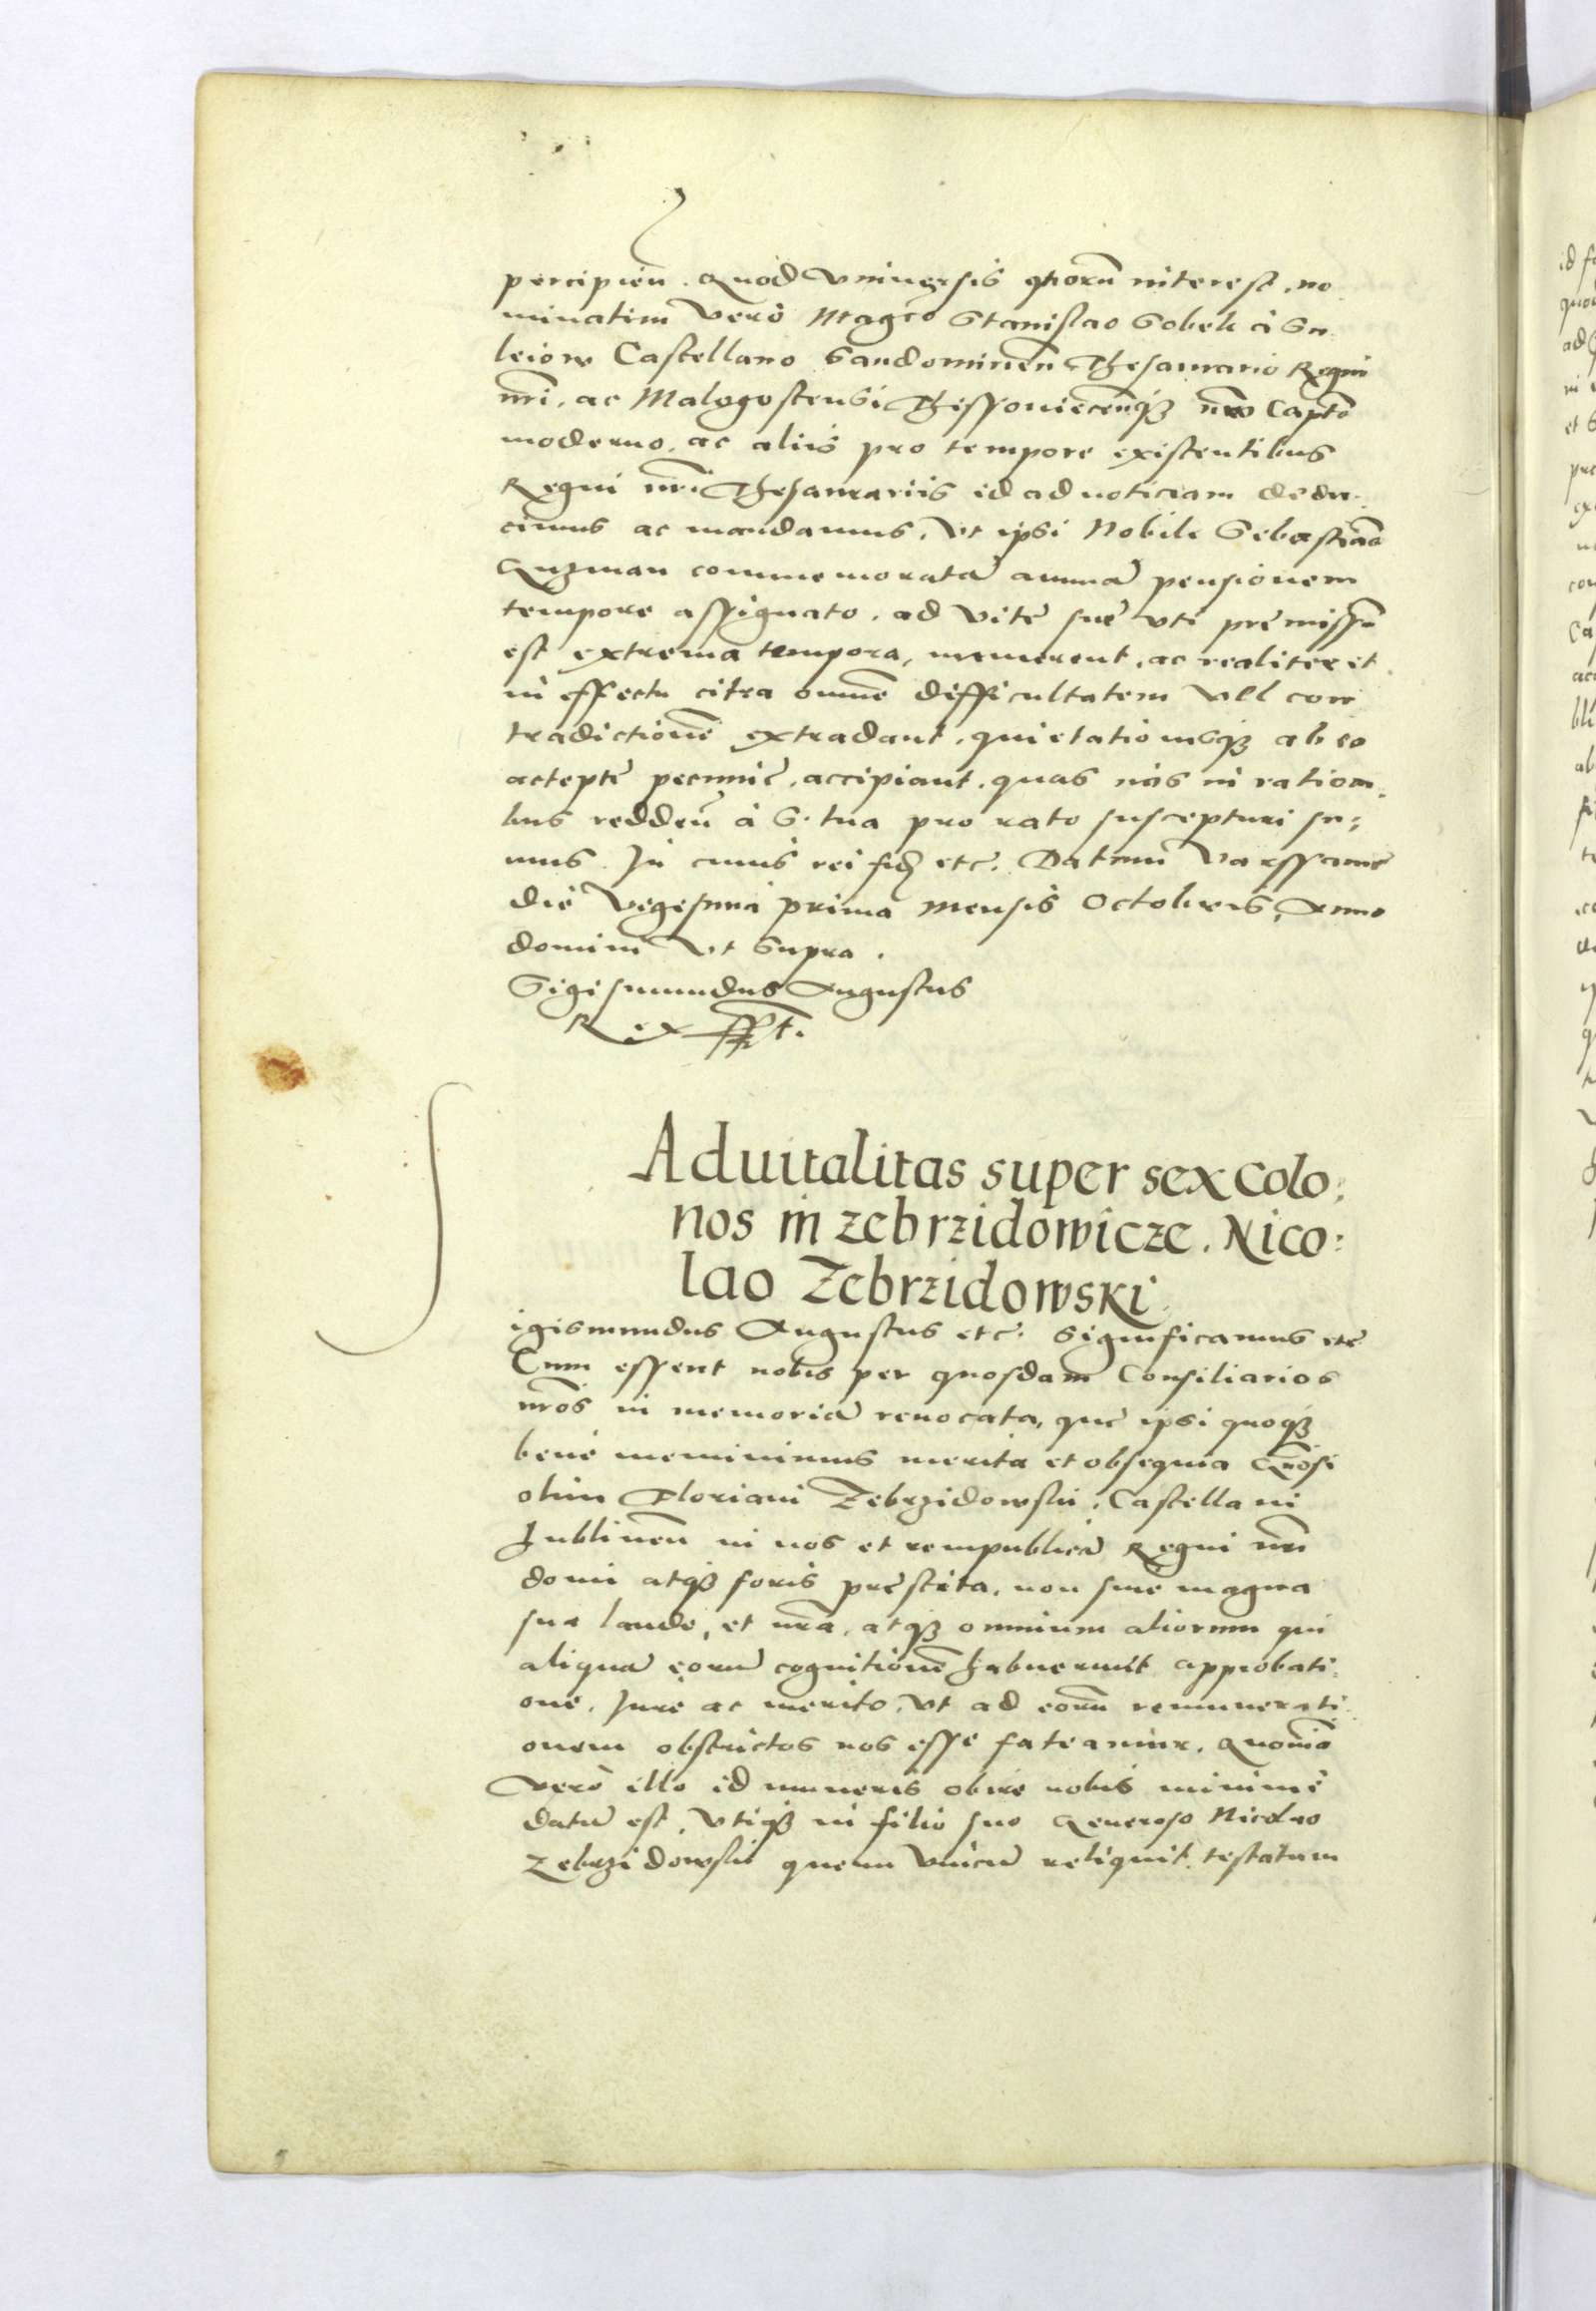 percipien̄. Quod Vniuersis quorū interest, no
minatim Verò Magco Stanislao Sobek à Su
leiow Castellano Sandomirien̄ Thesaurario Regni
nrī, ac Malogostensi Thissouiecen̄q₃ nr̄o Captō
moderno, ac aliis pro tempore existentibus
Regni nrī Thesaurariis id ad noticiam dedu
cimus ac mandamus, Vt ipsi Nobili Sebastiāo
Guzman commemoratā annuā pensionem
tempore assignato, ad Vitę suę vti pręmissū
est extrema tempora, numerent, ac realiter et
in effectu citra omnē difficultatem Vll con
tradictionē extradant, quietationesq₃ ab eo
acceptę pecunię, accipiant, quas nos in rationi,
bus redden̄ à S. tua pro rato suscepturi su,
mus. In cuius rei fid etc. Datum Varssauię
die Vegesima prima Mensis Octobris, Anno
domini Vt Supra.
Sigismundus Augustus
Rex sst.
Aduitalitas super sex colo:
nos in zebrzidowicze. Nico:
lao Zebrzidowski
S igismundus Augustus etc. Significamus etc
Cum essent nobis per quosdam Consiliarios
nrōs in memoriā reuocata, quę ipsi quoq₃
benè meminimus merita et obsequia Gn̄osi
olim Floriani Zebrzidowski, Castellani
Lublinen̄ in nos et rempublicā Regni nrī
domi atq₃ foris pręstita, non sine magna
sua laude, et nrā, atq₃ omnium aliorum qui
aliquā eorū cognitionē habuerunt approbati
one, Iure ac merito, Vt ad eorū remunerati
onem obstrictos nos esse fateamur. Quoniā
Verò illo id muneris obire nobis minimè
datū est, Vtiq₃ in filio suo Generoso Nicolao
Zebrzidowski quem Vnicū reliquit testatum